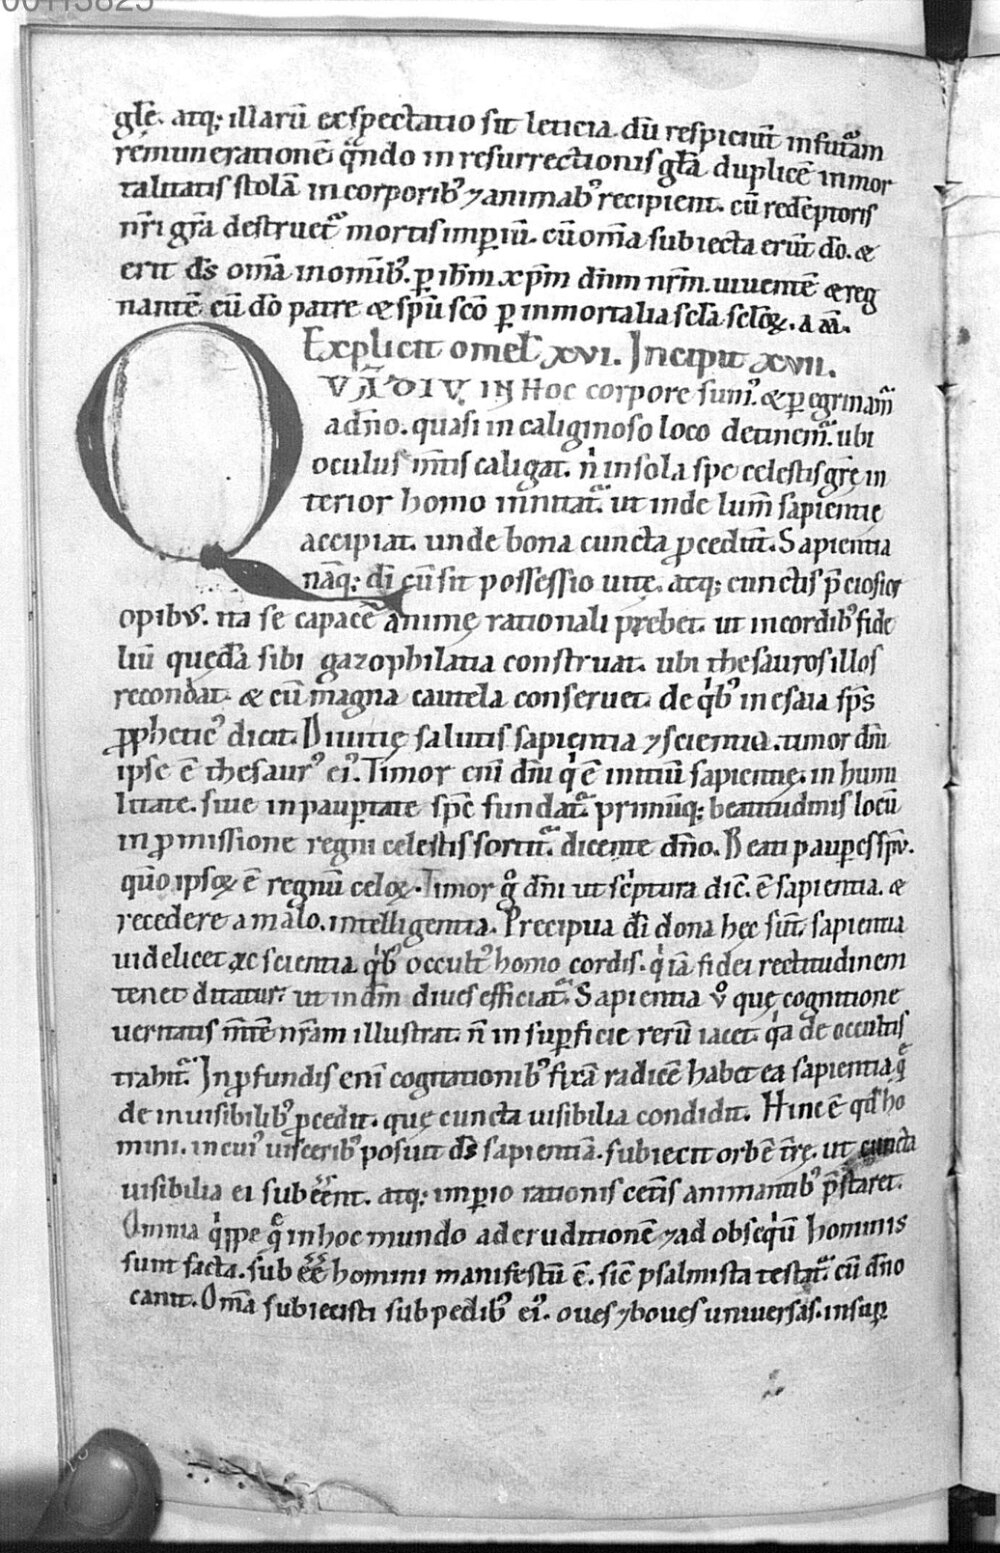 00113825
glę̄. atq; illarū exspectatio sit leticia. dū respiciunt in futurā
remunerationē q̄ndo in resurrectionis gl̄a duplicē inmor
talitatis stolā in corporibꝰ ⁊ animabꝰ recipient. cū redēptoris
nr̄i gr̄a destruet᷒ mortis imp̲iū. cū om̄a subiecta erūt dō. &
erit dꝰs om̄a in om̄ibꝰ. p̲ ih̄m xp̄m dn̄m nr̄m. uiuentē & reg
nantē cū dō patre & sp̄u sc̄o p̲ inmortalia sc̄la sc̄loꝝ. am̄.
Explicit omel̄ xvi. Incipit xvii.
QVĀDIV IN Hoc corpore sumꝰ. & p̲egrinam᷒
a dn̄o. quasi in caliginoso loco detinem᷒. ubi
oculus m̄tis caligat. n̄ in sola spe celestis grę in
terior homo innitat᷒. ut inde lum̄ sapientię
accipiat. unde bona cuncta ꝓcedunt. Sapientia
nāq; dī cū sit possessio uitę. atq; cunctis p̄ciosior
opibꝰ. ita se capacē animę rationali prebet. ut in cordibꝰ fide
liū quędā sibi gazophilatia construat. ubi thesauros illos
recondat. & cū magna cautela conseruet. de qͥbꝰ in esaia sp̄s
ꝓpheticꝰ dicit. Diuitię salutis sapientia ⁊ scientia. timor dn̄i
ipse ē thesaurꝰ eiꝰ. Timor eni dn̄i qͥ ē initiū sapientię. in humi
litate. siue in paup̲tate sp̄c fundat᷒. primūq; beatitudinis locū
in ꝓmissione regni celestis sortit᷒. dicente dn̄o. Beati paup̲es sp̄u.
qm̄o ipsoꝝ ē regnū celoꝝ. Timor g̊ dn̄i ut sc̄ptura dic̄. ē sapientia. &
recedere a malo. intelligentia. Precipua dī dona hęc sūt. sapientia
uidelicet ac scientia. qͥbꝰ occultꝰ homo cordis. qͥ iā fidei rectitudinem
tenet ditatur. ut in dn̄m diues efficiat᷒. Sapientia ů quę cognitione
ueritatis m̄tē nr̄am illustrat. n̄ in sup̲ficie rerū iacet. qͣa de occultis
trahit᷒. In ꝓfundis eni cogitationibꝰ fixā radicē habet ea sapientia. q̄
de inuisibilibꝰ ꝓcedit. quę cuncta uisibilia condidit. Hinc ē qd̄ ho
mini. in cuiꝰ uisceribꝰ posuit dꝰs sapientiā. subiecit orbē tr̄ę. ut cuncta
uisibilia ei subēēnt. atq; imp̲io rationis cet̄is animantibꝰ p̄staret.
Omnia qͥppe q̄ in hoc mundo ad eruditionē ⁊ ad obseqͥū hominis
sunt facta. sub ēē homini manifestū ē. sic̄ psalmista testat᷒. cū dn̄o
canit. Om̄a subiecisti sub pedibꝰ eiꝰ. oues ⁊ boues uniuersas. insup̲